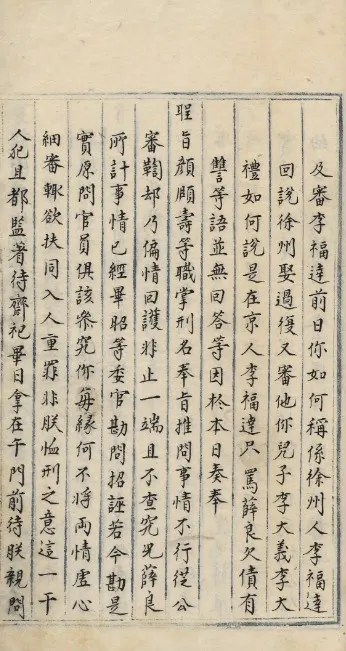 及審李福達前日你如何稱係徐州人李福達
回說徐州娶過後又審他你兒子李大義李大
禮如何說是在京人李福達只罵薛良欠債有
讐等語並無回答等因於本日奏奉
聖旨顏頤壽等職掌刑名奉旨推問事情不行從公
審鞫却乃偏情回護非止一端且不查究見薛良
所計事情已經畢昭等委官勘問招誣若今勘是
實原問官員俱該叅究你每緣何不將兩情虛心
細審輙欲扶同入人重罪非朕恤刑之意這一干
人犯且都監著待齋祀畢日拿在午門前待朕親問